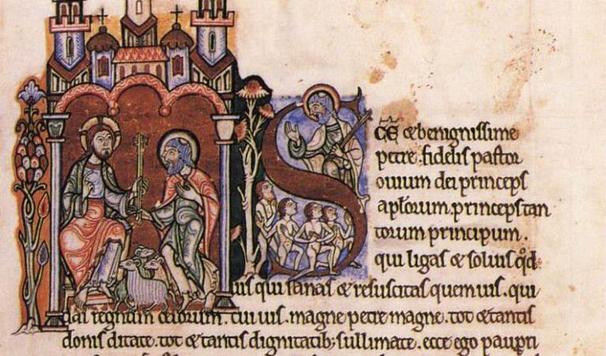 SCE & benignissime
petre. fidelis pastor
ouium dei princeps
aplorum. princeps tan
torum principum.
qui ligas & soluis qd
uis qui sanas & resuscitas quem uis. qui
dat regnum celorum. cui uis. magne petre magne. tot & tantis
donis ditate. tot & tantis dignitatib; sullimate. ecce ego